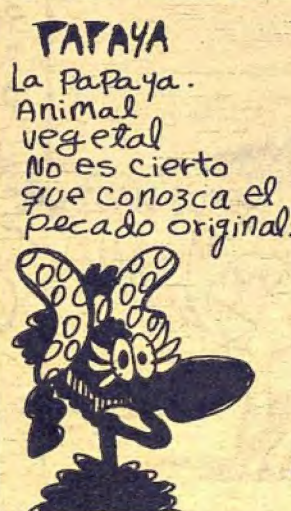 PAPAYA
La PaPaya.
Animal
vegetal
No es cierto
que conozca el
pecado original.